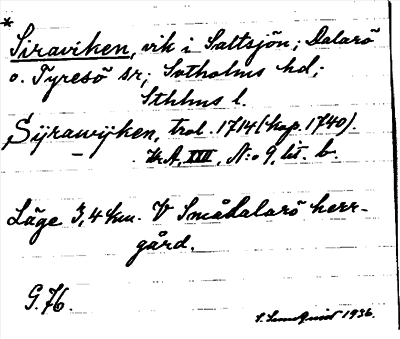 *
Siraviken, vik i Saltsjön; Dalarö
o. Tyresö sr; Sotholms hd;
Sthlms l.
Sÿrawÿken, trol. 1714 (kop. 1740).
Kr A, XVII, N:o 9, lit. b.
Läge 3,4 km. V Smådalarö herr-
gård.
G. 76.
S. 1936.